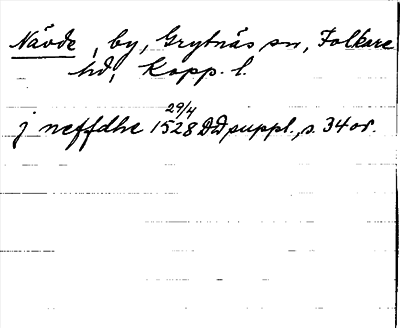 Nävde, by, Grytnäs sn, Folkare
hd, Kopp. l.
j neffdhe 1528 29/4 DD suppl., s. 34 or.